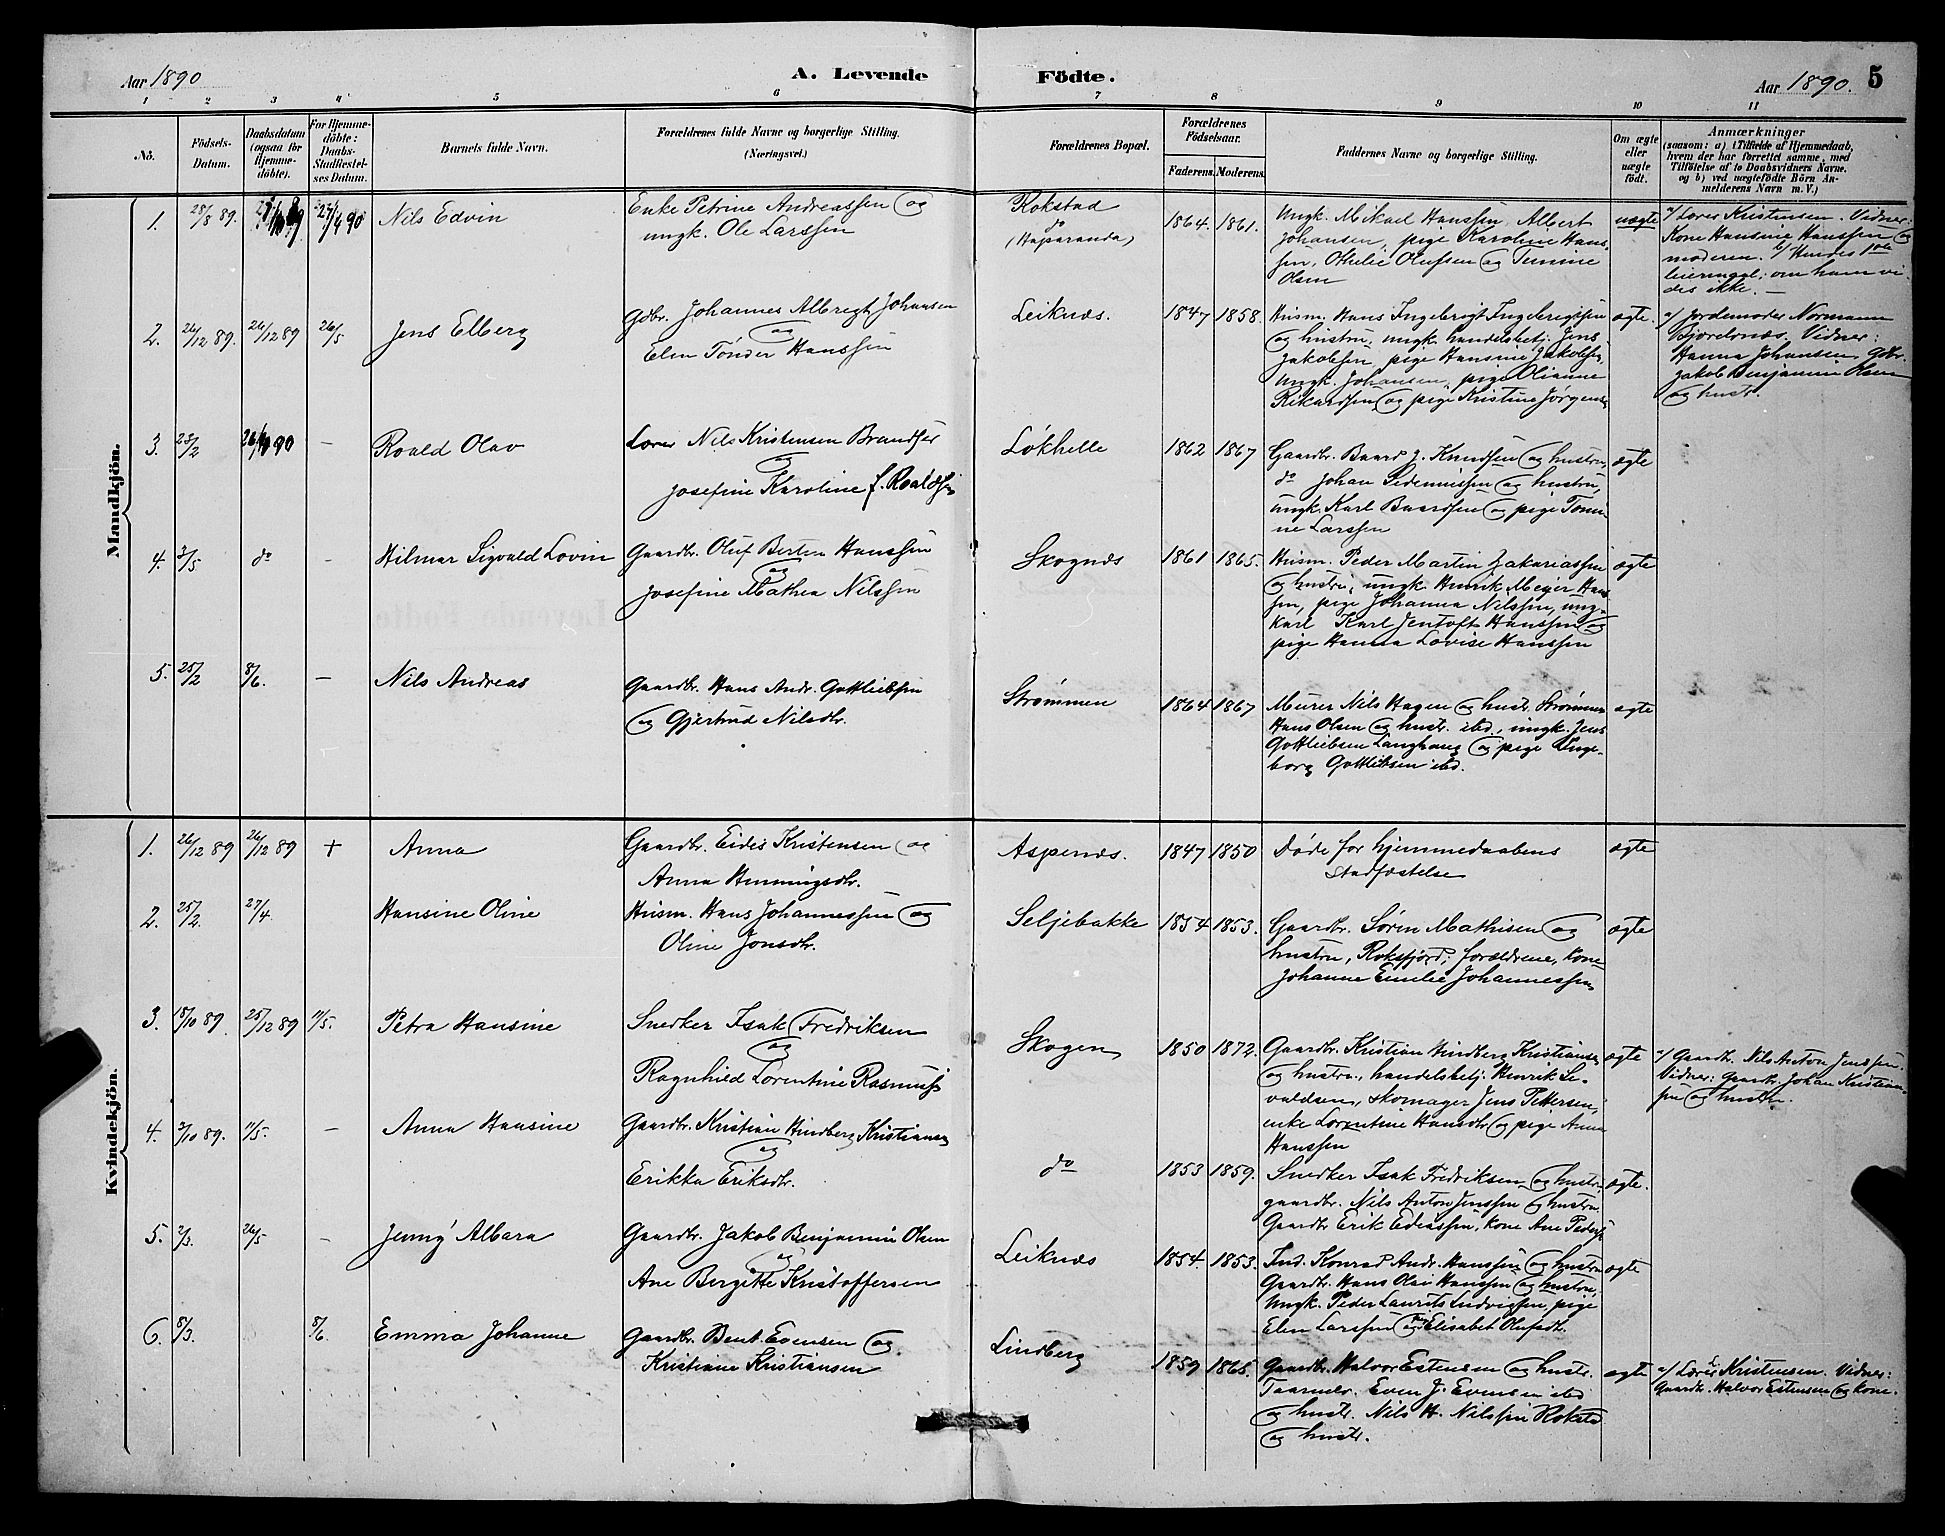 Aar 1890
A. Levende
Födte.
Aar 1890.
5
1 2 3 4 5 6 7 8 9 10 11
No.
Födsels-
Datum.
Daabsdatum
(ogsaa for
Hjemme-
döbte).
For Hjemme-
döbte:
Daabs-
Stadfæstel-
ses Datum.
Barnets fulde Navn.
Forældrenes fulde Navne og borgerlige Stilling.
(Næringsvei.)
Forældrenes Bopæl.
Forældrenes
Födselsaar.
Faderens. Moderens.
Faddernes Navne og borgerlige Stilling.
Om ægte
eller
uægte
födt.
Anmærkninger
(saasom: a) i Tilfælde af Hjemmedaab,
hvem der har forrettet samme, med
Tilföielse af to Daabsvidners Navne.
og b) ved uægtefödte Börn An-
melderens Navn m. V.)
Mandkjön.
1. 28/8 89. 27/4 90 Nils Edvin
Enke Petrine Andreassen og
ungk. Ole Larssen
Rokstad
(Haparanda)
1864. 1861.
Ungk. Mikael Hanssen, Albert
Johansen, pige Karoline Hans-
sen, Othelie Olufsen og Tennine
Olsen
uægte
a/ Lærer Kristensen. Vidner:
Kone Hansine Hanssen og
moderen. b/ Hendes 1ste
leiermaal; om ham vi-
des ikke. —
2. 26/12 89. 26/12 89 26/5 Jens Elberg
Gdbr. Johannes Albregt Johansen
og
Elen Tønder Hanssen
Leiknæs.
1847 1858.
Husm. Hans Ingebrigt Ingebrigtsen
og hustru, ungk. handelsbetj. Jens
Jakobsen, pige Hansine Jakobsen,
ungk. Johansen, pige Olianne
Rikardsen, og pige Kristine Jørgens.
ægte.
a/ Jordemoder Normann
Gjordernæs. Vidner:
Hanna Johansen, gdbr.
Jakob Benjamin Olsen
og hustr.
3. 23/2 90 — Roald Olav
Lærer Nils Kristensen Brandser
og
Josefine Karoline f. Roaldsen
Løkhelle
1862 1867
Gaardbr. Baard J. Knudsen og hustru,
do Johan Pedersen og hustru,
ungk. Karl Baardsen og pige Tomi-
ne Larssen
ægte
4. 3/5 do — Hilmar Sigvald Lovin
Gaardbr. Oluf Berten Hanssen
og
Josefine Mathea Nilssen
Skognæs
1861 1865.
Husm. Peder Martin Zakariassen
og hustru, ungk. Henrik Meyer Hans-
sen, pige Johanna Nilssen, ung-
karl Karl Jentoft Hanssen og
pige Hanna Lovise Hanssen
ægte
5. 25/2 8/6. — Nils Andreas
Gaardbr. Hans Andr. Gottliebsen
og Gjertrud Nilsdtr.
Strømmen
1864 1867
Murer Nils Hagen og hustr. Strømmen
Hans Olsen og hustr. ibd., ungk. Jens
Gottliebsen Langhaug og pige Inge-
borg Gottliebsen ibd.
ægte
Kvindekjön.
1. 26/12 89 26/12 89 + Anna
Gaardbr. Eidis Kristensen og
Anna Henningsdtr.
Aspenæs.
1847 1850
Døde før hjemmedaabens
stadfæstelse
ægte
2. 25/2. 27/4. Hansine Oline
Husm. Hans Johannessen og
Oline Jonsdtr.
Seljebakke
1854 1853.
Gaardbr. Søren Mathisen og
hustru, Roksfjord; forældrene, kone
Johanne Emelie Johannessen
ægte
3. 18/10 89. 25/12 89 11/5. Petra Hansine
Snedker Isak Fredriksen
og
Ragnhild Lorentine Rasmuss.
Skogen
1850 1872.
Gaardbr. Kristian Hindberg Kristiansen
og hustru., handelsbetj. Henrik Si-
valdsen, skomager Jens Pettersen,
enke Lorentine Hansdtr. og pige Anna
Hanssen
ægte
a/ Gaardb. Nils Anton Jenssen.
Vidner: Gaardbr. Johan Kristian-
sen og hustru.
4. 3/10 89. 11/5. — Anna Hansine
Gaardbr. Kristian Hindberg Kristiansen
og
Erikka Eriksdtr.
do
1853 1859.
Snedker Isak Fredriksen og hustru,
gaardbr. Nils Anton Jenssen og hustru
Gaardbr. Erik Ediassen, kone Ane Peders.
ægte.
5. 2/3. 26/5 — Jenny Albara
Gaardbr. Jakob Benjamin Olsen
og
Ane Bergitte Kristoffersen
Leiknæs
1854. 1853.
Ind. Konrad Andr. Hanssen og hustru
Gaardbr. Hans Olai Hanssen og hustru,
ungk. Peder Laurits Ludvigsen, pige
Elen Larssen og Elisabet Olufsdtr.
ægte
6. 8/3. 8/6. Emma Johanne
Gaardbr. Bent. Evensen og
Kristiane Kristiansen
Lindberg
1859 1865.
Gaardbr. Halvor Estensen og hustr.
Taarnelv. Even J. Evensen ibd
og hustr. Nils H. Nilssen Rokstad
og hustr.
ægte
a/ Lærer Kristensen. Vidner:
Gaardbr. Halvor Estensen og kone.